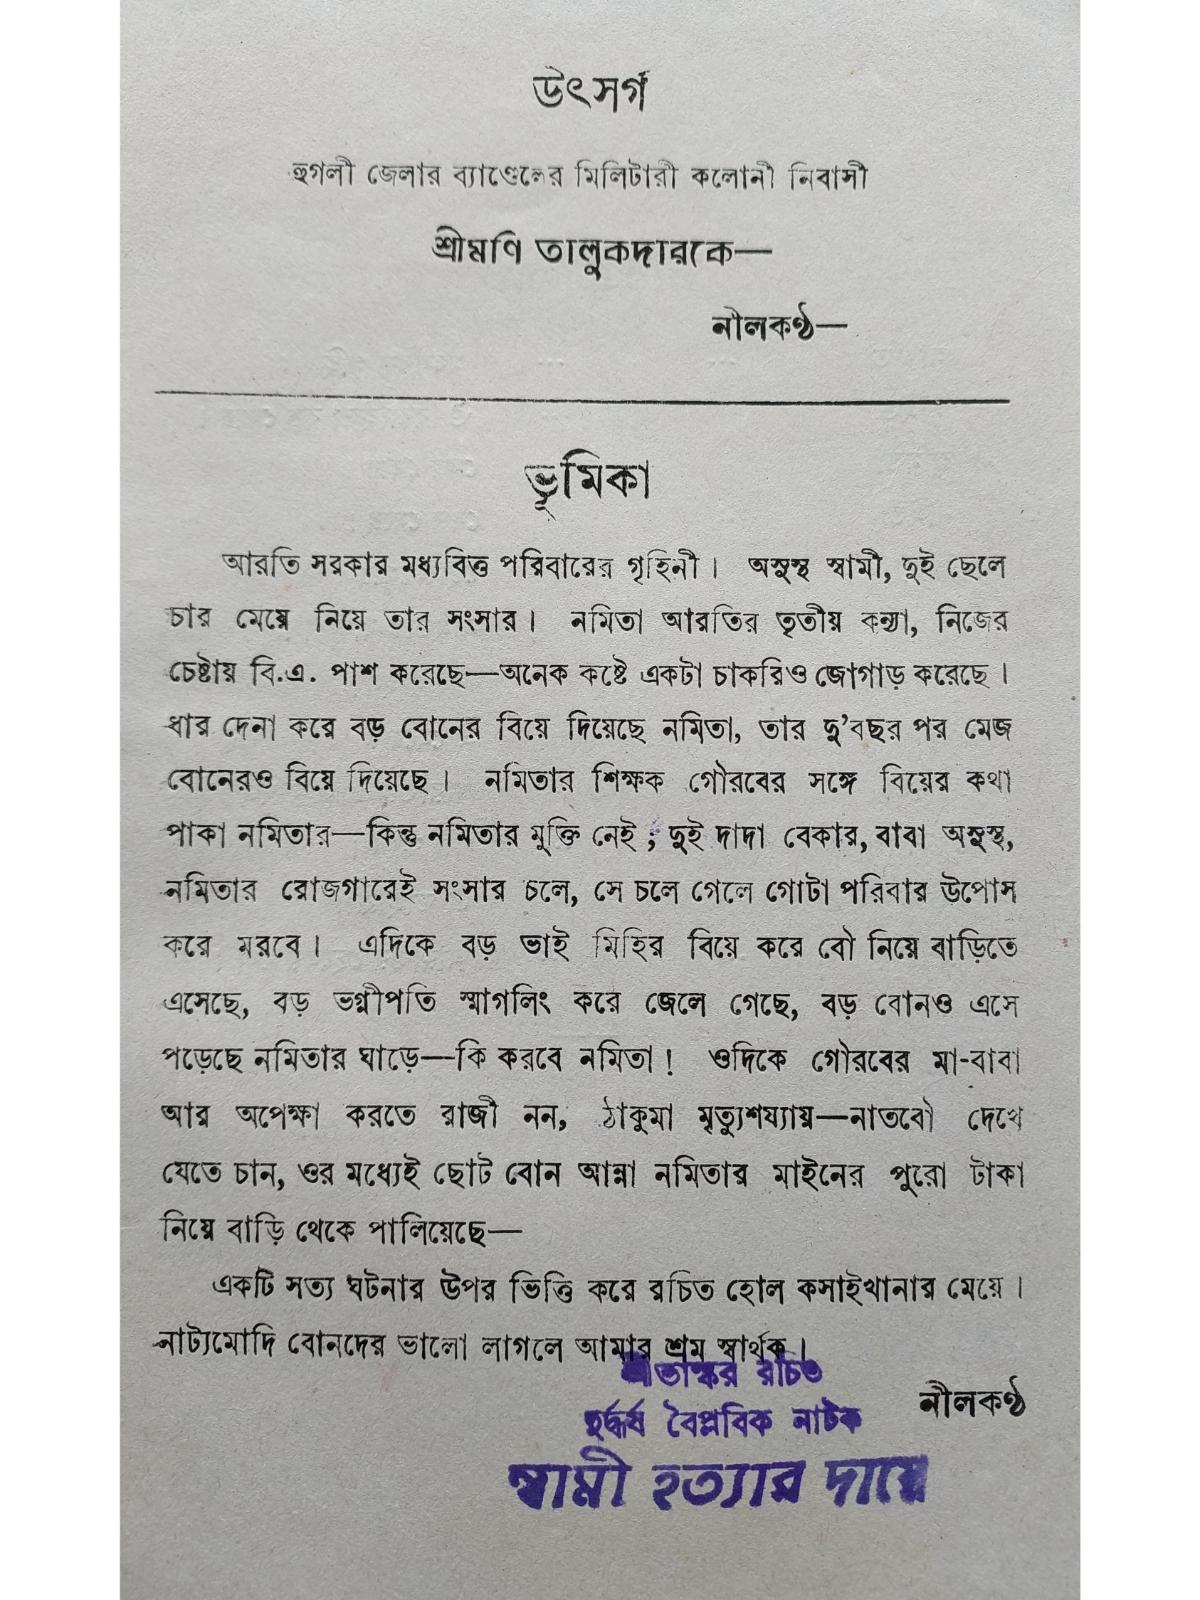 উৎসর্গ
হুগলী জেলার ব্যাণ্ডেলের মিলিটারী কলোনী নিবাসী
শ্রীমণি তালুকদারকে—
নীলকণ্ঠ—
ভূমিকা
আরতি সরকার মধ্যবিত্ত পরিবারের গৃহিনী। অসুস্থ স্বামী, দুই ছেলে
চার মেয়ে নিয়ে তার সংসার। নমিতা আরতির তৃতীয় কন্যা, নিজের
চেষ্টায় বি.এ. পাশ করেছে—অনেক কষ্টে একটা চাকরিও জোগাড় করেছে।
ধার দেনা করে বড় বোনের বিয়ে দিয়েছে নমিতা, তার দু'বছর পর মেজ
বোনেরও বিয়ে দিয়েছে। নমিতার শিক্ষক গৌরবের সঙ্গে বিয়ের কথা
পাকা নমিতার—কিন্তু নমিতার মুক্তি নেই; দুই দাদা বেকার, বাবা অসুস্থ,
নমিতার রোজগারেই সংসার চলে, সে চলে গেলে গোটা পরিবার উপোস
করে মরবে। এদিকে বড় ভাই মিহির বিয়ে করে বৌ নিয়ে বাড়িতে
এসেছে, বড় ভগ্নীপতি স্মাগলিং করে জেলে গেছে, বড় বোনও এসে
পড়েছে নমিতার ঘাড়ে—কি করবে নমিতা! ওদিকে গৌরবের মা-বাবা
আর অপেক্ষা করতে রাজী নন, ঠাকুমা মৃত্যুশয্যায়—নাতবৌ দেখে
যেতে চান, ওর মধ্যেই ছোট বোন আন্না নমিতার মাইনের পুরো টাকা
নিয়ে বাড়ি থেকে পালিয়েছে—
একটি সত্য ঘটনার উপর ভিত্তি করে রচিত হোল কসাইখানার মেয়ে।
নাট্যমোদি বোনদের ভালো লাগলে আমার শ্রম স্বার্থক।
নীলকণ্ঠ
রচিত
দুর্দ্ধর্ষ বৈপ্লবিক নাটক
স্বামী হত্যার দায়ে